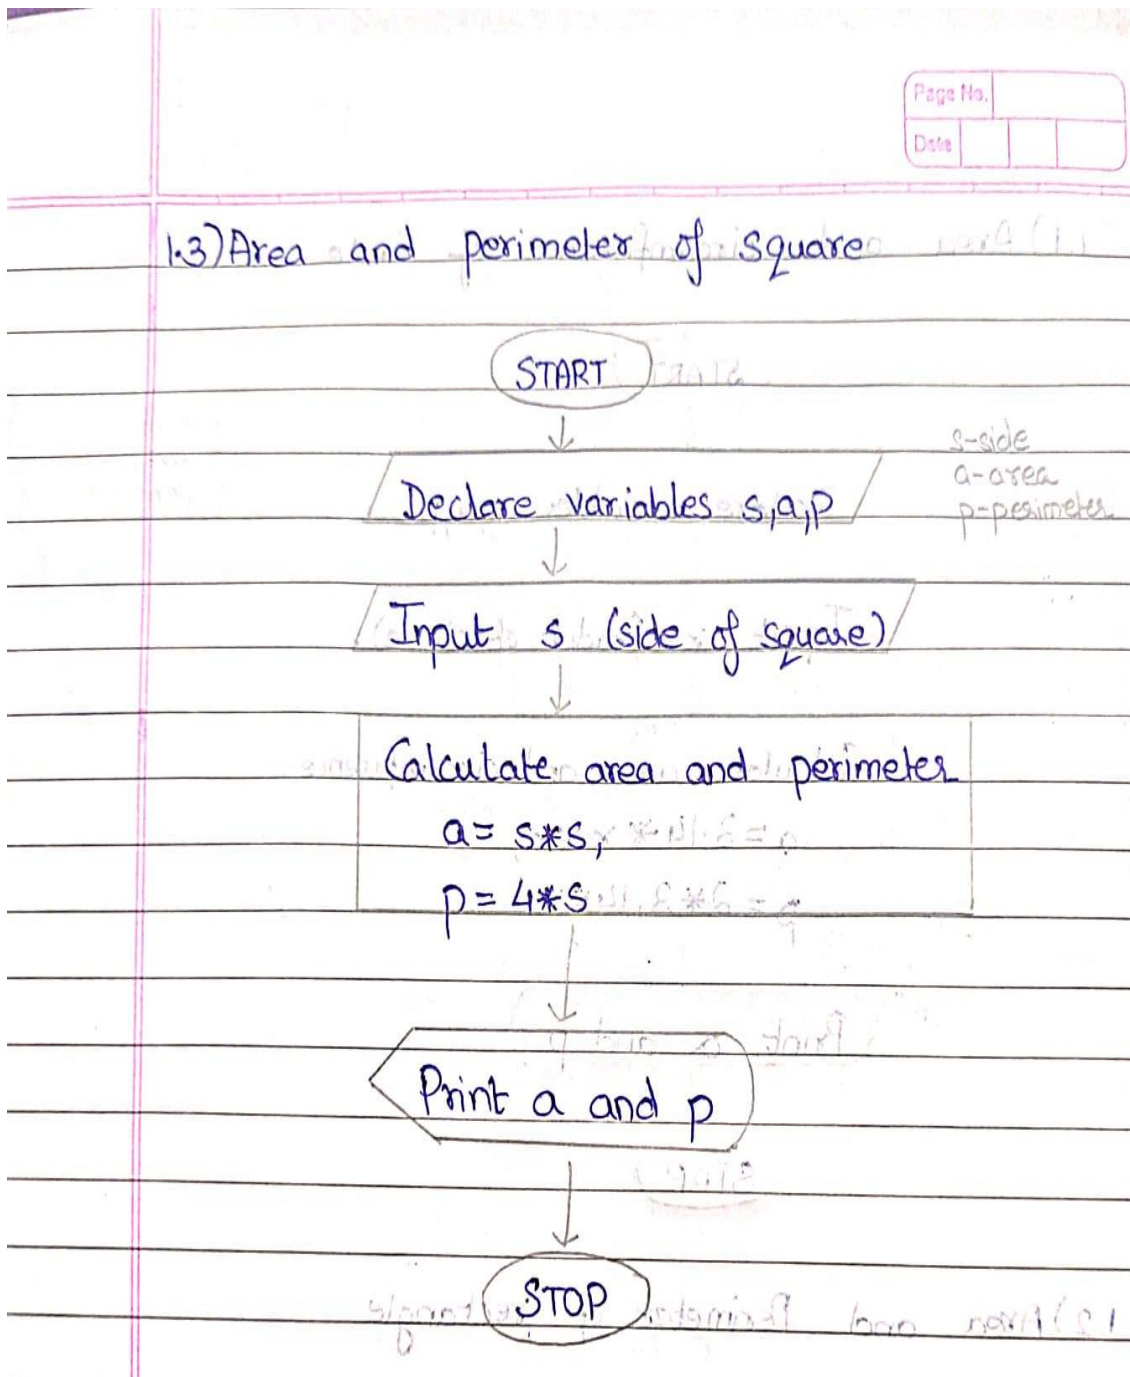 Page No.
Date
1.3) Area and perimeter of square
START
s-side
a-area
p-perimeter
Declare variables s,a,p
Input s (side of square)
Calculate area and perimeter
a= s*s,
p= 4*s
Print a and p
STOP